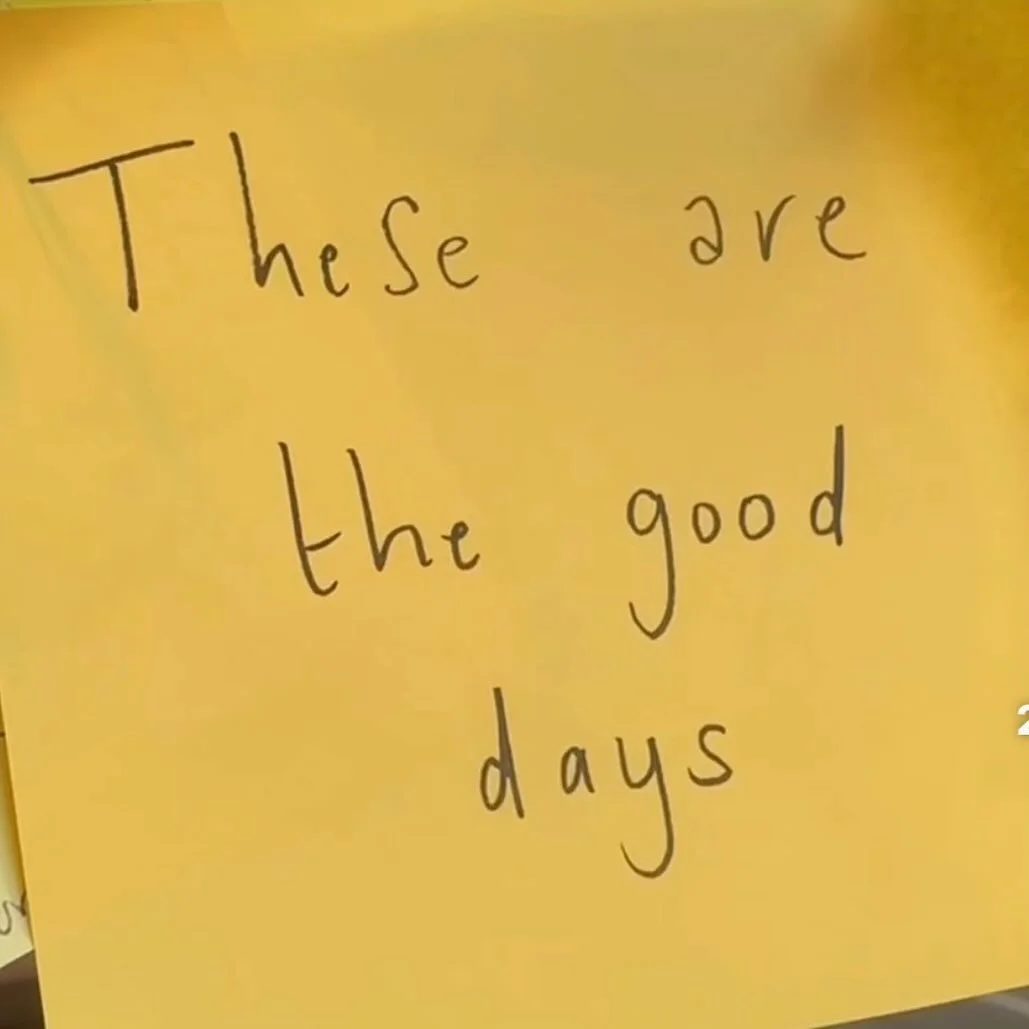 These are
the good
days